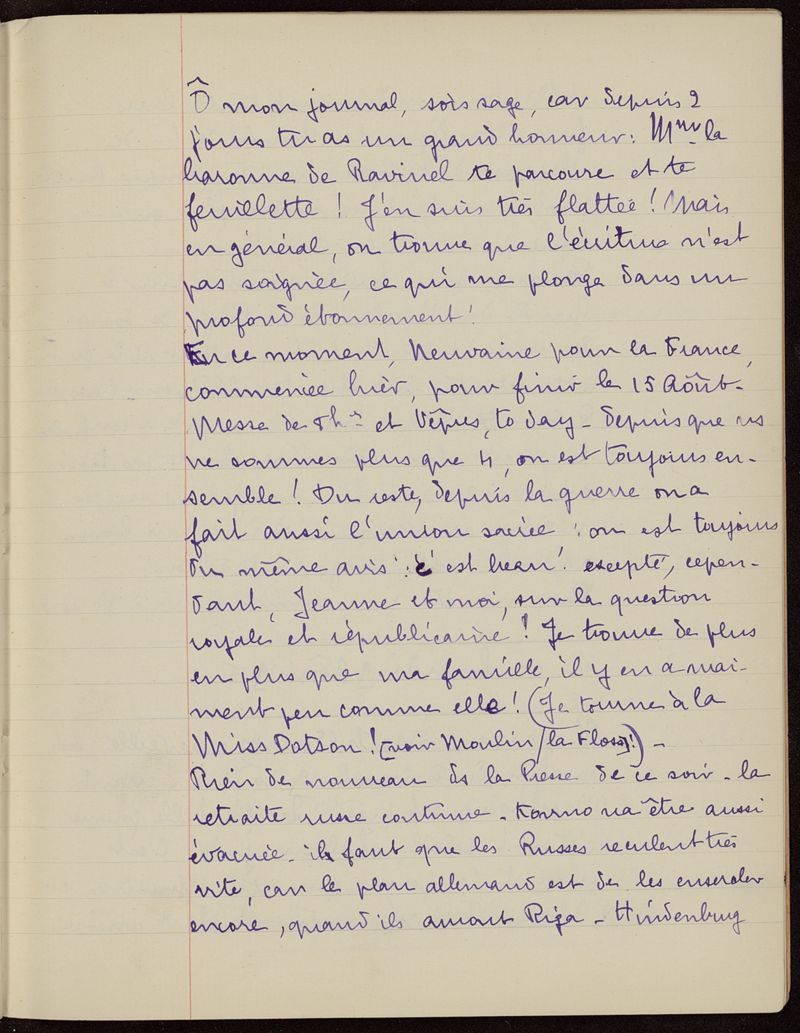 Ô mon journal, sois sage, car depuis 2
jours tu as un grand honneur : Mme la
baronne de Ravinel te parcoure et te
feuillette ! J'en suis très flattée ! Mais
en général, on trouve que l'écriture n'est
pas soignée, ce qui me plonge dans un
profond étonnement !
En ce moment, Neuvaine pour la France,
commencée hier, pour finir le 15 Août.
Messe de 8h et Vêpres, to day - depuis que ns
ne sommes plus que 4, on est toujours en-
semble ! Du reste, depuis la guerre on a
fait aussi l'union sacrée : on est toujours
du même avis : c'est beau ! excepté, cepen-
dant, Jeanne et moi, sur la question
royale et républicaine ! Je trouve de plus
en plus que ma famille, il y en a vrai-
ment peu comme elle ! (Je tourne à la
Miss Dotson ! [voir Moulin / la Floss] !) -
Rien de nouveau ds la Presse de ce soir - la
retraite russe continue - Kovno va être aussi
évacuée - il faut que les Russes reculent très
vite, car le plan allemand est de les encercler
encore, quand ils auront Riga - Hindenburg